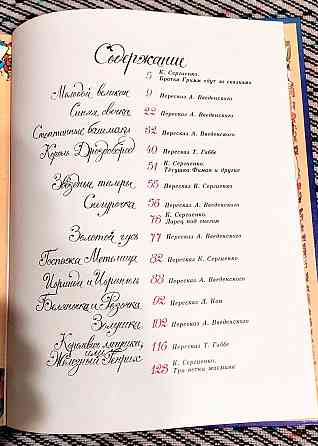 Содержание
5 К. Сергиенко.
Братья Гримм едут за сказками
Молодой великан 9 Пересказ А. Введенского
Синяя свечка 22 Пересказ А. Введенского
Стоптанные башмаки 32 Пересказ А. Введенского
Король Дроздобород 40 Пересказ Т. Габбе
51 К. Сергиенко.
Тётушка Фиман и другие
Звёздные талеры 55 Пересказ К. Сергиенко
Снегурочка 56 Пересказ А. Введенского
75 К. Сергиенко.
Ларец под снегом
Золотой гусь 77 Пересказ А. Введенского
Госпожа Метелица 82 Пересказ К. Сергиенко.
Иоринда и Иорингель 88 Пересказ А. Введенского
Беляночка и Розочка 92 Пересказ Л. Кон
Золушка 102 Пересказ А. Введенского
Король-лягушонок, или
Железный Генрих 116 Пересказ Т. Габбе
123 К. Сергиенко.
Три ветки жасмина